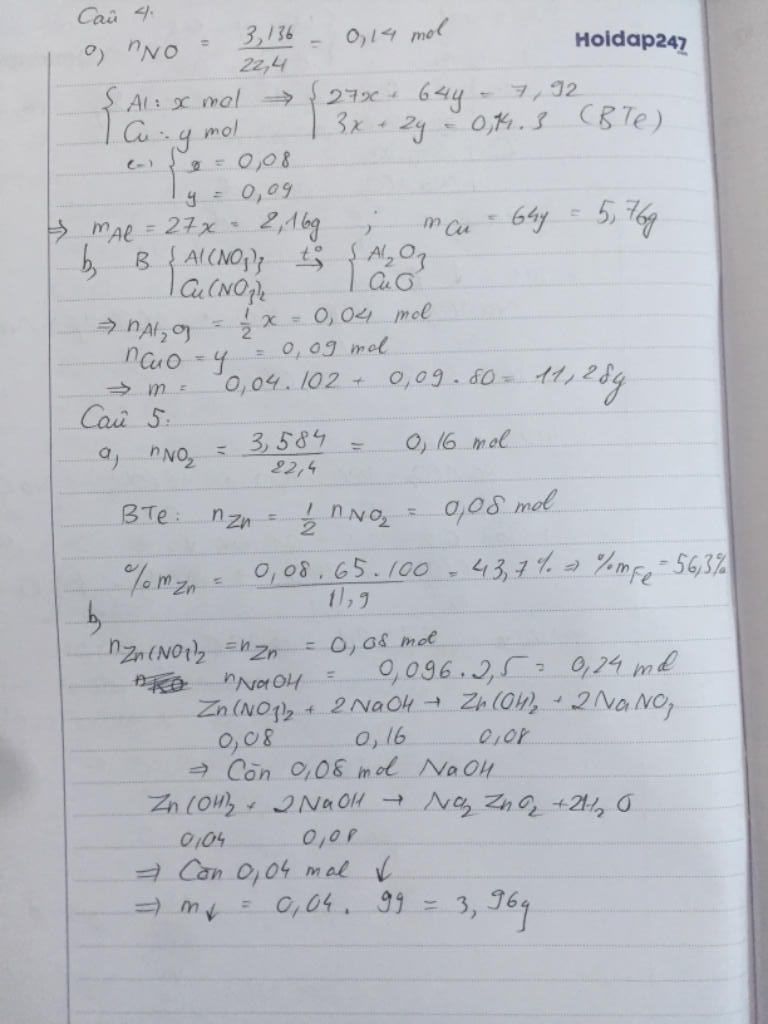 Câu 4:
a, nNO = 3,136/22,4 = 0,14 mol
Hoidap247
{ Al: x mol => { 27x + 64y = 7,92
Cu: y mol 3x + 2y = 0,14.3 (BTe)
<-> { x = 0,08
y = 0,09
=> mAl = 27x = 2,16g ; mCu = 64y = 5,76g
b, B { Al(NO3)3 t°→ { Al2O3
Cu(NO3)2 CuO
=> nAl2O3 = 1/2 x = 0,04 mol
nCuO = y = 0,09 mol
=> m = 0,04.102 + 0,09.80 = 11,28g
Câu 5:
a, nNO2 = 3,584/22,4 = 0,16 mol
BTe: nZn = 1/2 nNO2 = 0,08 mol
%mZn = 0,08.65.100/11,9 = 43,7% => %mFe = 56,3%
b,
nZn(NO3)2 = nZn = 0,08 mol
nNaOH = 0,096.2,5 = 0,24 mol
Zn(NO3)2 + 2NaOH → Zn(OH)2 + 2NaNO3
0,08 0,16 0,08
=> Còn 0,08 mol NaOH
Zn(OH)2 + 2NaOH → Na2ZnO2 + 2H2O
0,04 0,08
=> Còn 0,04 mol ↓
=> m↓ = 0,04.99 = 3,96g